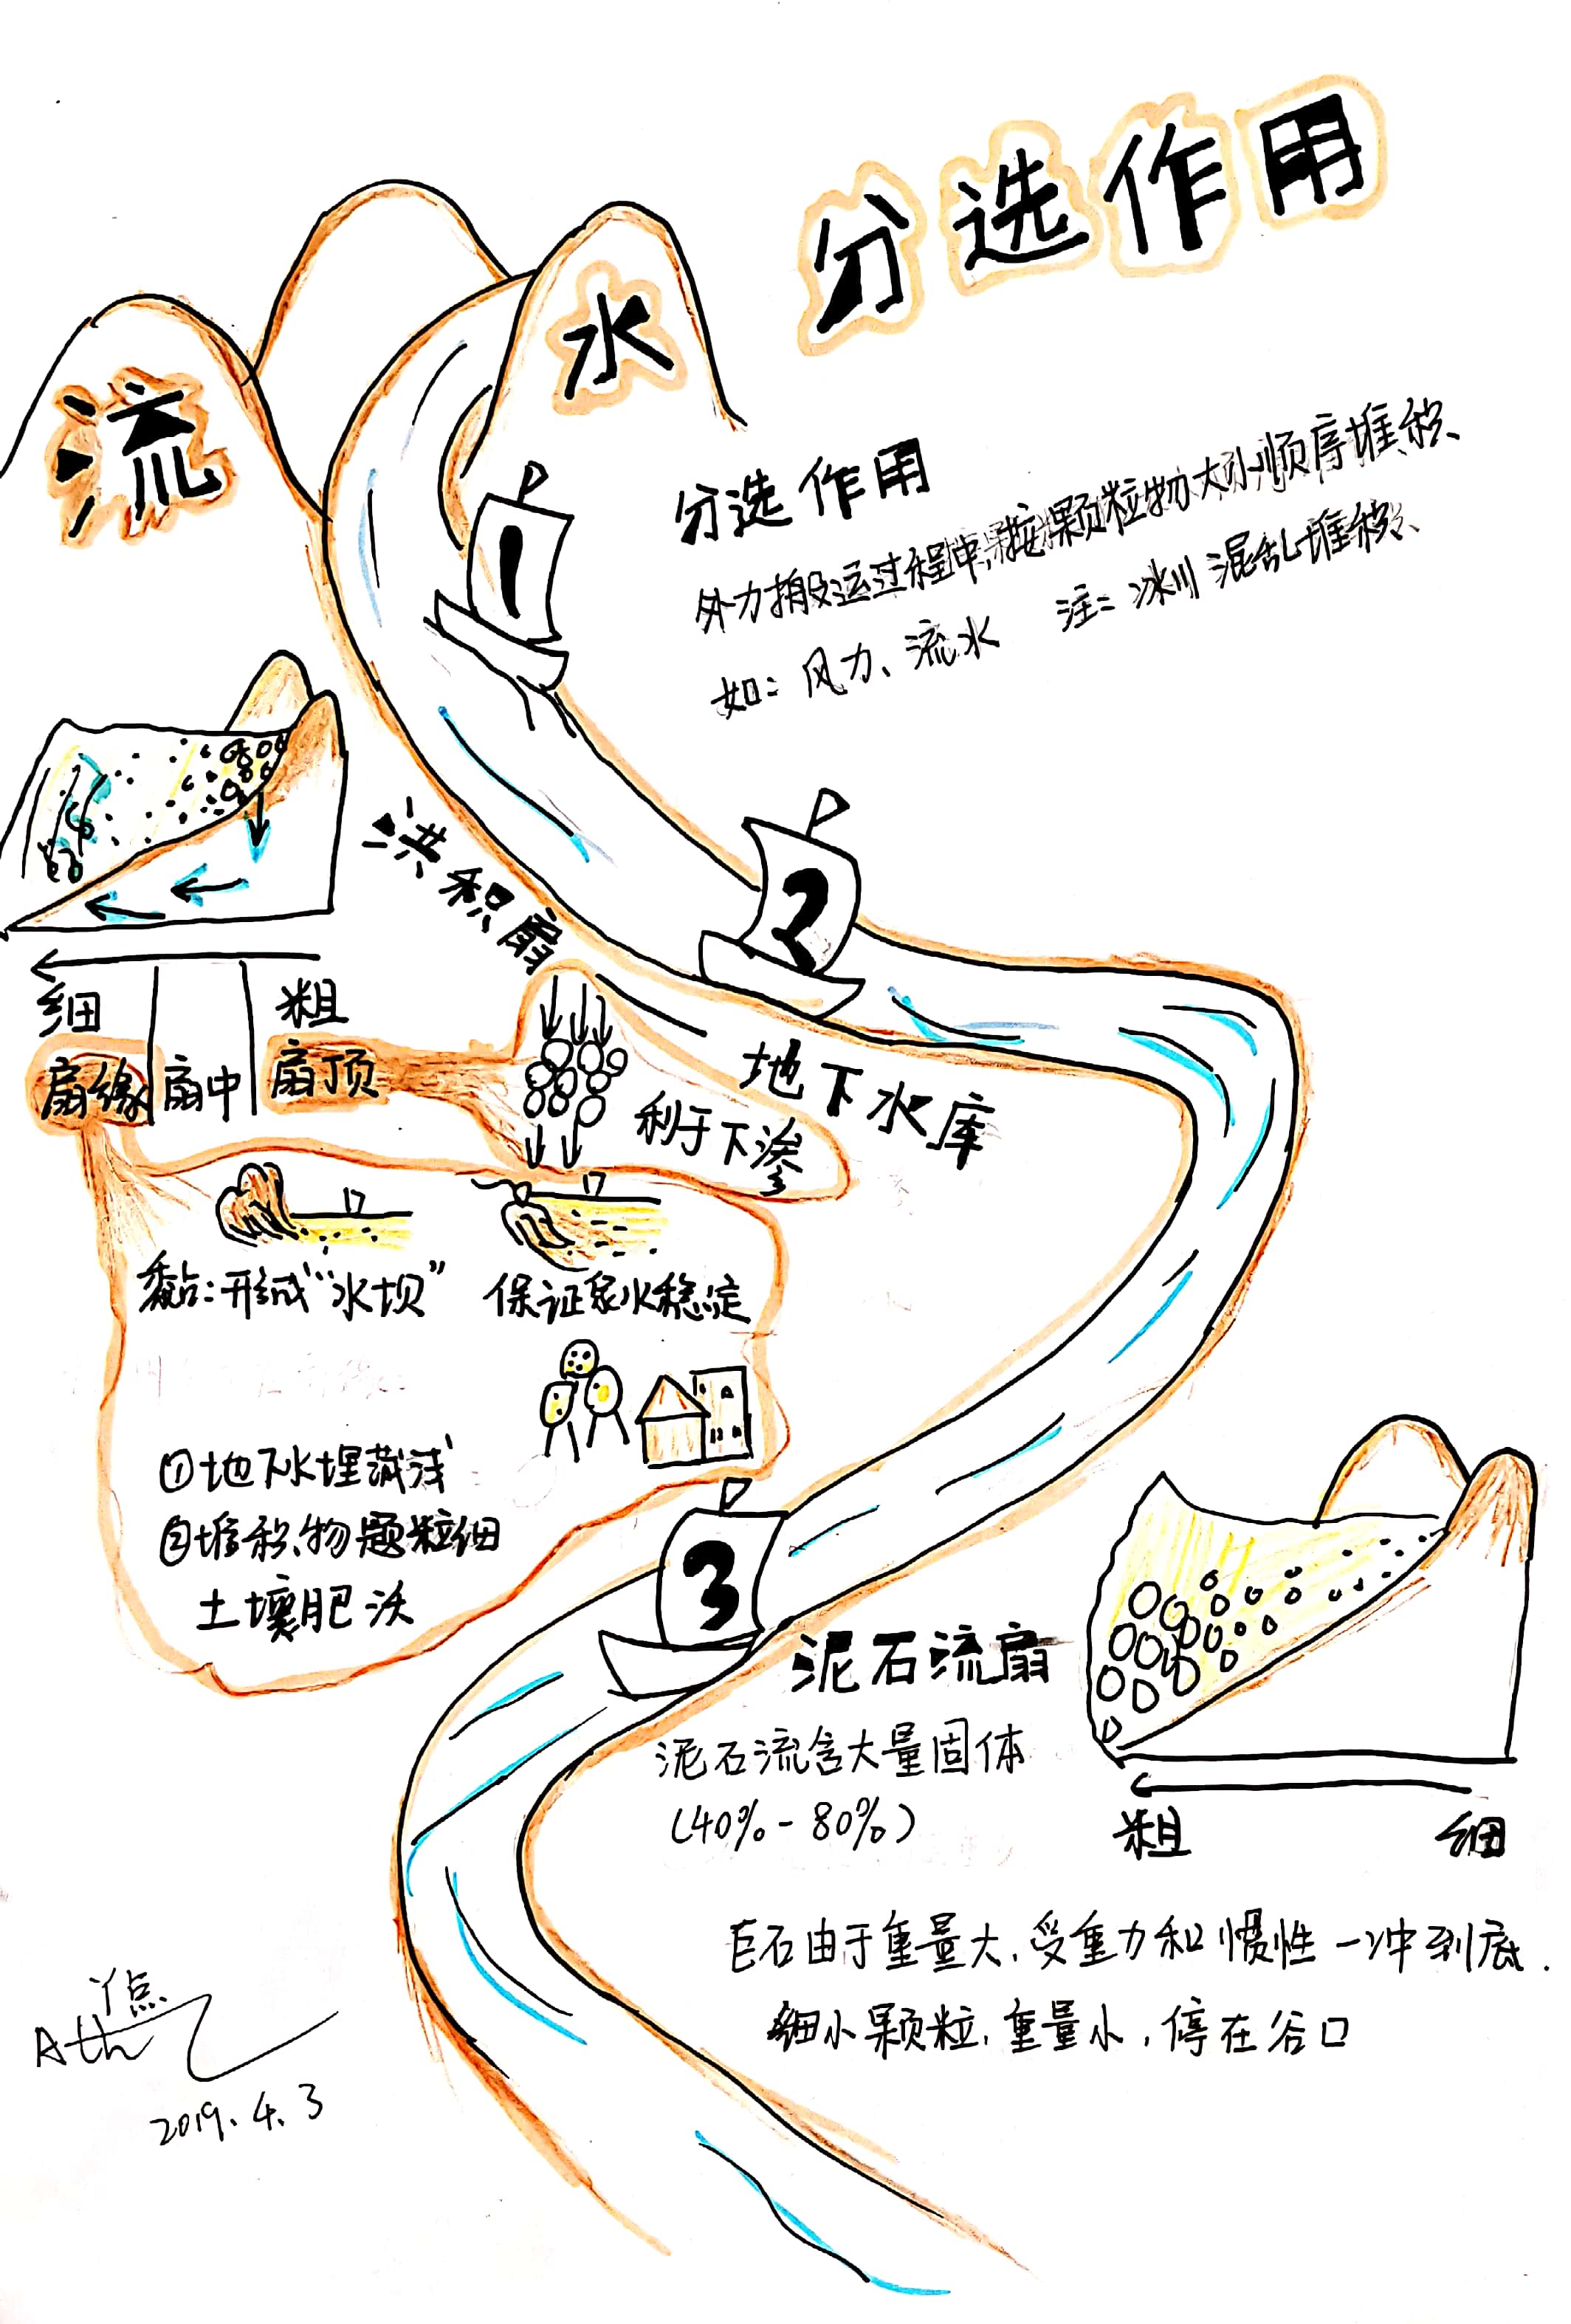 流水分选作用
1
分选作用
外力搬运过程中,按颗粒物大小顺序堆积、
如:风力、流水 注:冰川混乱堆积、
2
洪积扇
细 粗
扇缘 扇中 扇顶
地下水库
利于下渗
黏:形成“水坝” 保证泉水稳定
①地下水埋藏浅
②堆积物颗粒细
土壤肥沃
3
泥石流扇
泥石流含大量固体
(40%-80%)
粗 细
巨石由于重量大,受重力和惯性一冲到底.
细小颗粒,重量小,停在谷口
丫点
2019.4.3